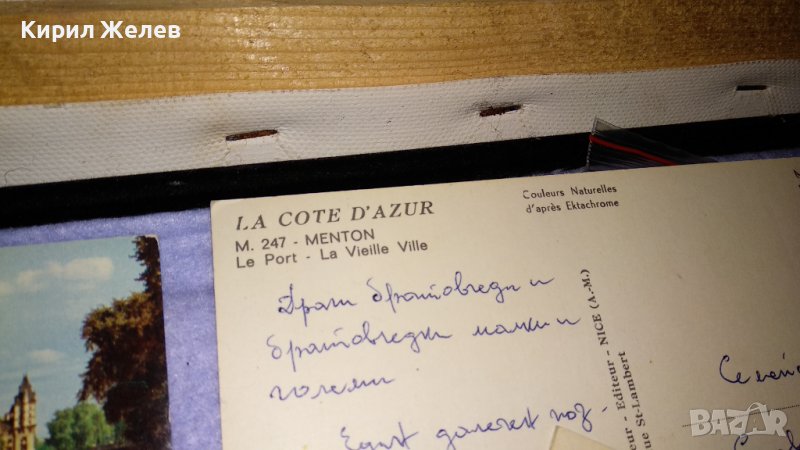 Кирил Желев
LA COTE D'AZUR
M. 247 - MENTON
Le Port - La Vieille Ville
Couleurs Naturelles
d'après Ektachrome
Драги братовчеди и
братовчедки малки и
големи
Един далечен поз-
Editeur - NICE (A.-M.)
ue St-Lambert
BAZAR